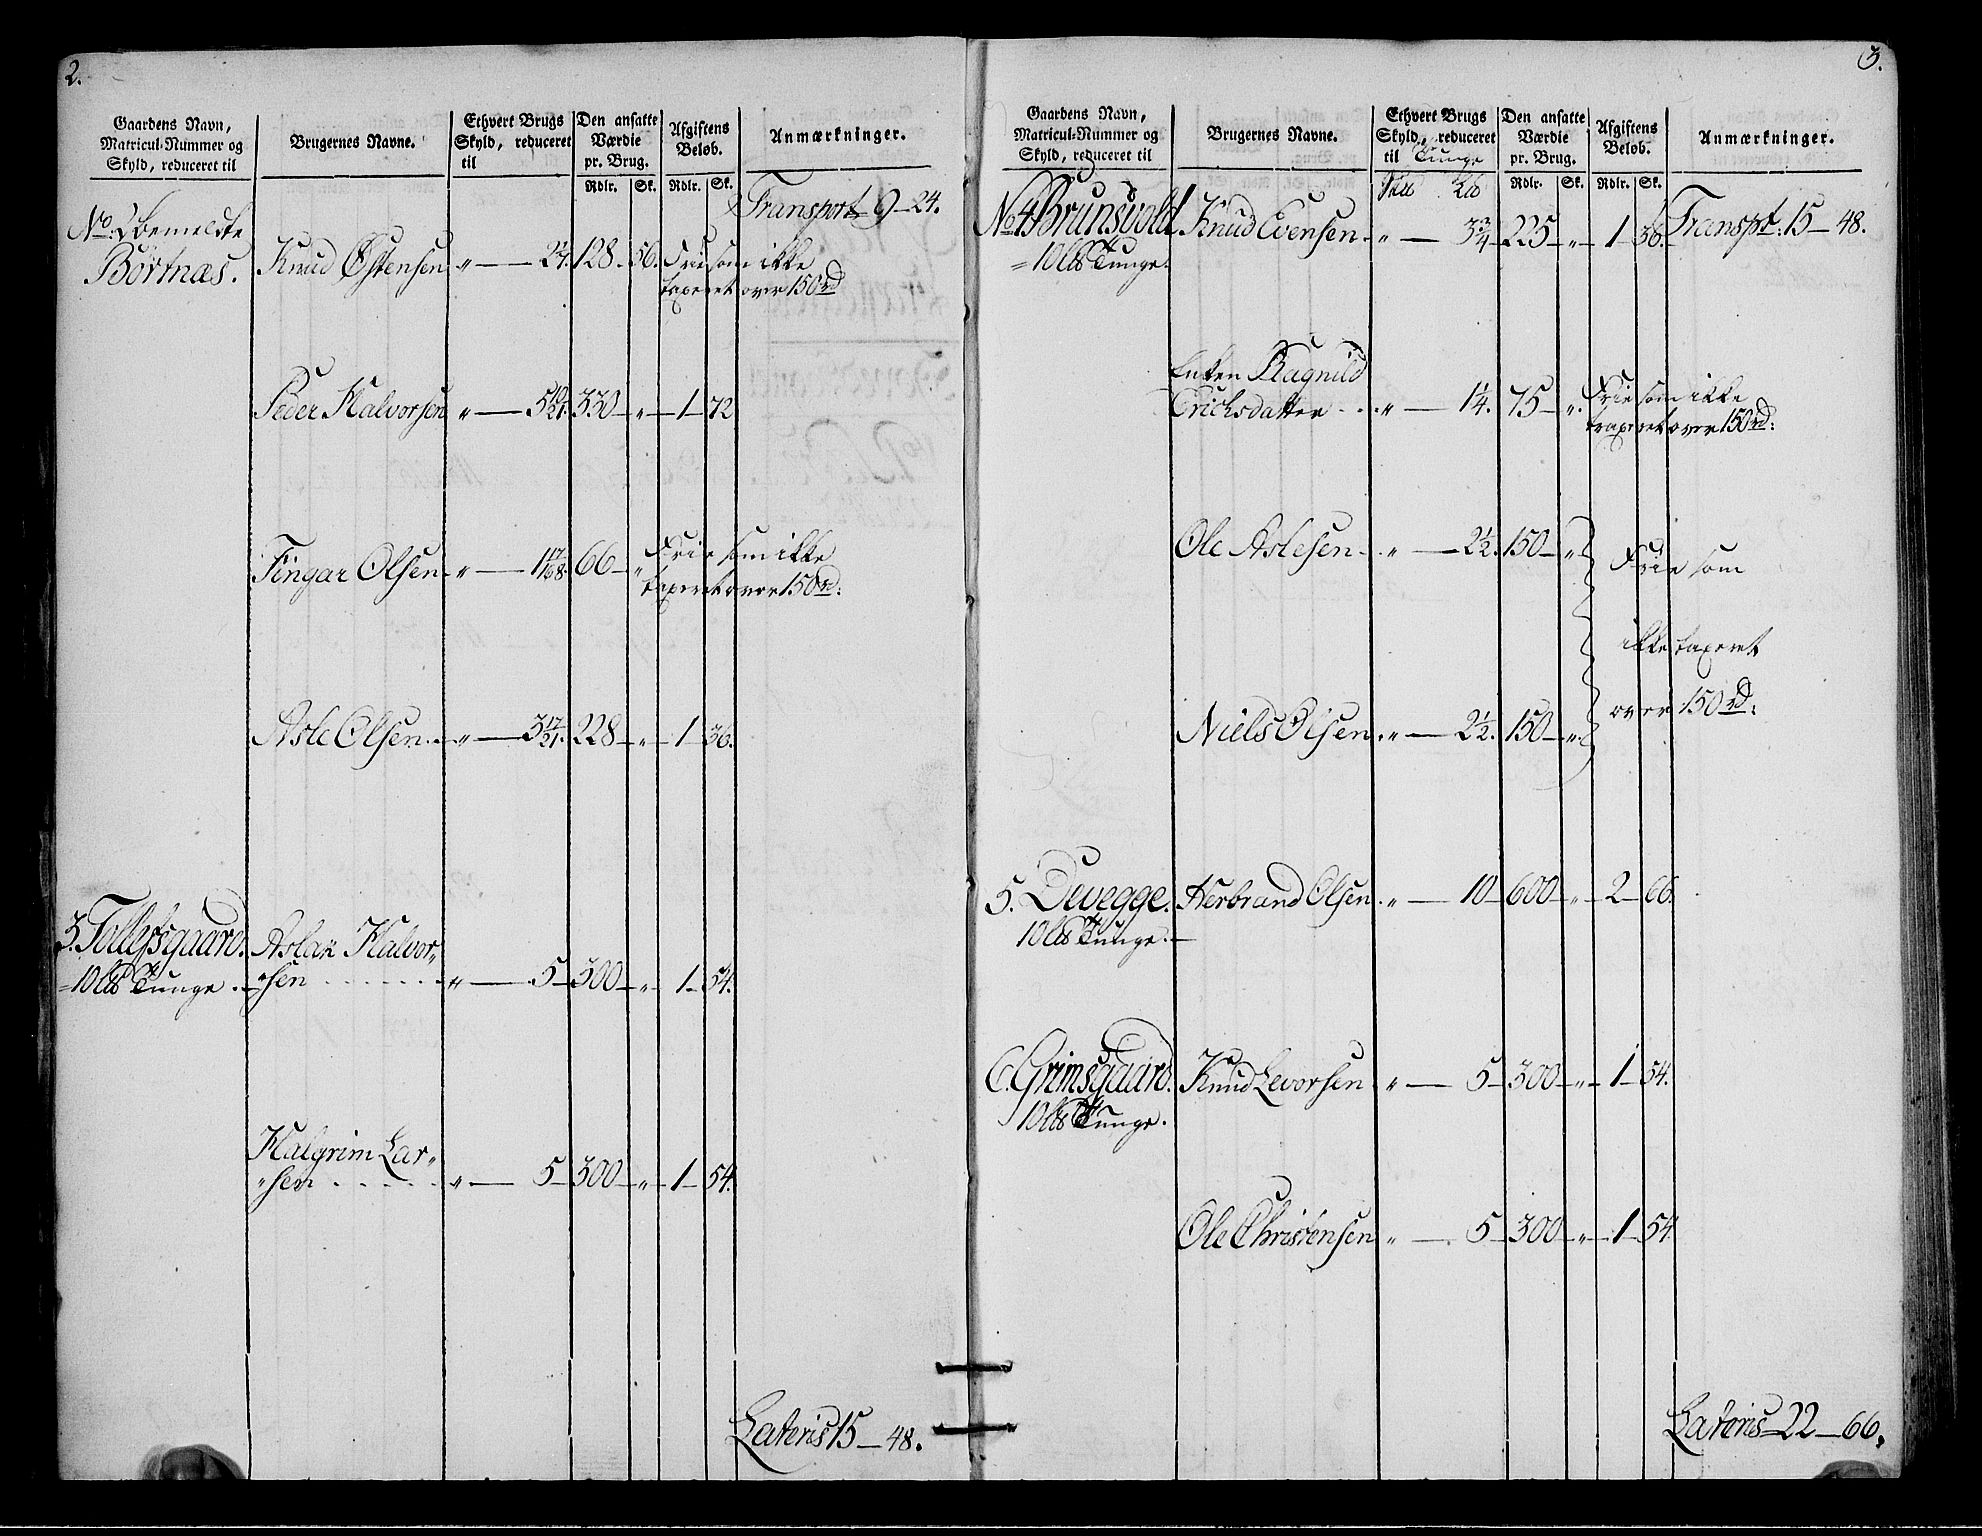 2.
Gaardens Navn,
Matricul-Nummer og
Skyld, reduceret til
Brugernes Navne.
Ethvert Brugs
Skyld, reduceret
til
Den ansatte
Værdie
pr. Brug.
Rdlr. Sk.
Afgiftens
Beløb.
Rdlr. Sk.
Anmærkninger.
Transport 9 — 24.
No. 2 bemeldte
Börtnæs.
Knud Østensen „ — 2 1/7. 128. 56. Frie som ikke
taxeret over 150 rd
Peder Halvorsen „ — 5 10/21. 330 — „ — 1 — 72
Fingar Olsen „ — 66 — „ Frie som ikke
taxeret over 150 rd:
Asle Olsen „ — 3 17/21. 228 — „ — 1 — 36.
3. Tollefsgaard.
= 10 Lb Tunge.
Aslak Halvor„
„sen . . . . . . „ — 5 — 300 — „ — 1 — 54.
Halgrim Lar„
„sen . . . . . . „ — 5 — 300 — „ — 1 — 54.
Lateris 15 — 48.
3.
Gaardens Navn,
Matricul-Nummer og
Skyld, reduceret til
Brugernes Navne.
Ethvert Brugs
Skyld, reduceret
til Tunge
Den ansatte
Værdie
pr. Brug.
Rdlr. Sk.
Afgiftens
Beløb.
Rdlr. Sk.
Anmærkninger.
No. 4 Brunsvold
= 10 Lb Tunge.
Knud Evensen „ — 3 3/4 225 — „ — 1 — 36. Transpt: 15 — 48.
Enken Ragnild
Erichsdatter „ — 1 1/4. 75 — „ Frie som ikke
taxeret over 150 rd:
Ole Aslesen „ — 2 1/2. 150 — „
Frie som
ikke taxeret
over 150 rd:
Niels Olsen „ — 2 1/2. 150 — „
5. Devegge.
10 Lb Tunge.
Herbrand Olsen „ — 10 — 600 — „ — 2 — 66.
6. Grimsgaard.
10 Lb Tunge.
Knud Levorsen „ — 5 — 300 — „ — 1 — 54.
Ole Christensen „ — 5 — 300 — „ — 1 — 54.
Lateris — 22 — 66.